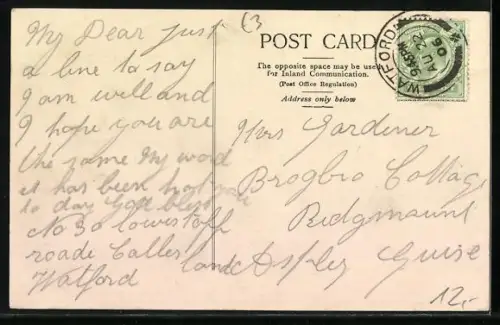 (3
My Dear just
a line to say
I am well and
I hope you are
the same My word
it has been hot
to day God bless you
No 30 lowestoff
roade Caller land
Watford
POST CARD
The opposite space may be used
for Inland Communication.
(Post Office Regulation)
Address only below
WATFORD
9.45PM
AU 2
06
Mrs Gardener
Brogbro Cottage
Ridgmount
Aspley Guise
12,-